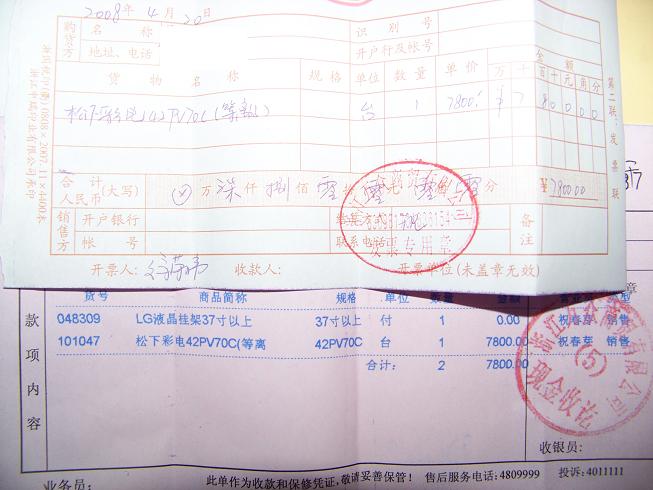 2008年4月20日
购货方 名称 识别号
地址、电话 开户行及帐号
货物名称 规格 单位 数量 单价 金额
万 千 百 十 元 角 分
松下彩电42PV70C(等离) 台 1 7800. ¥ 7 8 0 0 0 0
合计 人民币 (大写) 万 仟 捌 佰 零 拾 零 元 零 角 零 分 ¥7800.00
销售方 开户银行 结算方式 备注
帐号 联系电话
发票专用章
开票人: 收款人: 开票单位(未盖章无效)
第二联:发票联
货号 商品简称 规格 单位 数量 金额 类型
款项内容
048309 LG液晶挂架37寸以上 37寸以上 付 1 0.00 祝春芽 销售
101047 松下彩电42PV70C(等离 42PV70C 台 1 7800.00 祝春芽 销售
合计: 2 7800.00
有限公司
(5)
现金收讫
收银员:
业务员: 此单作为收款和保修凭证,敬请妥善保管! 售后服务电话: 4809999 投诉: 4011111